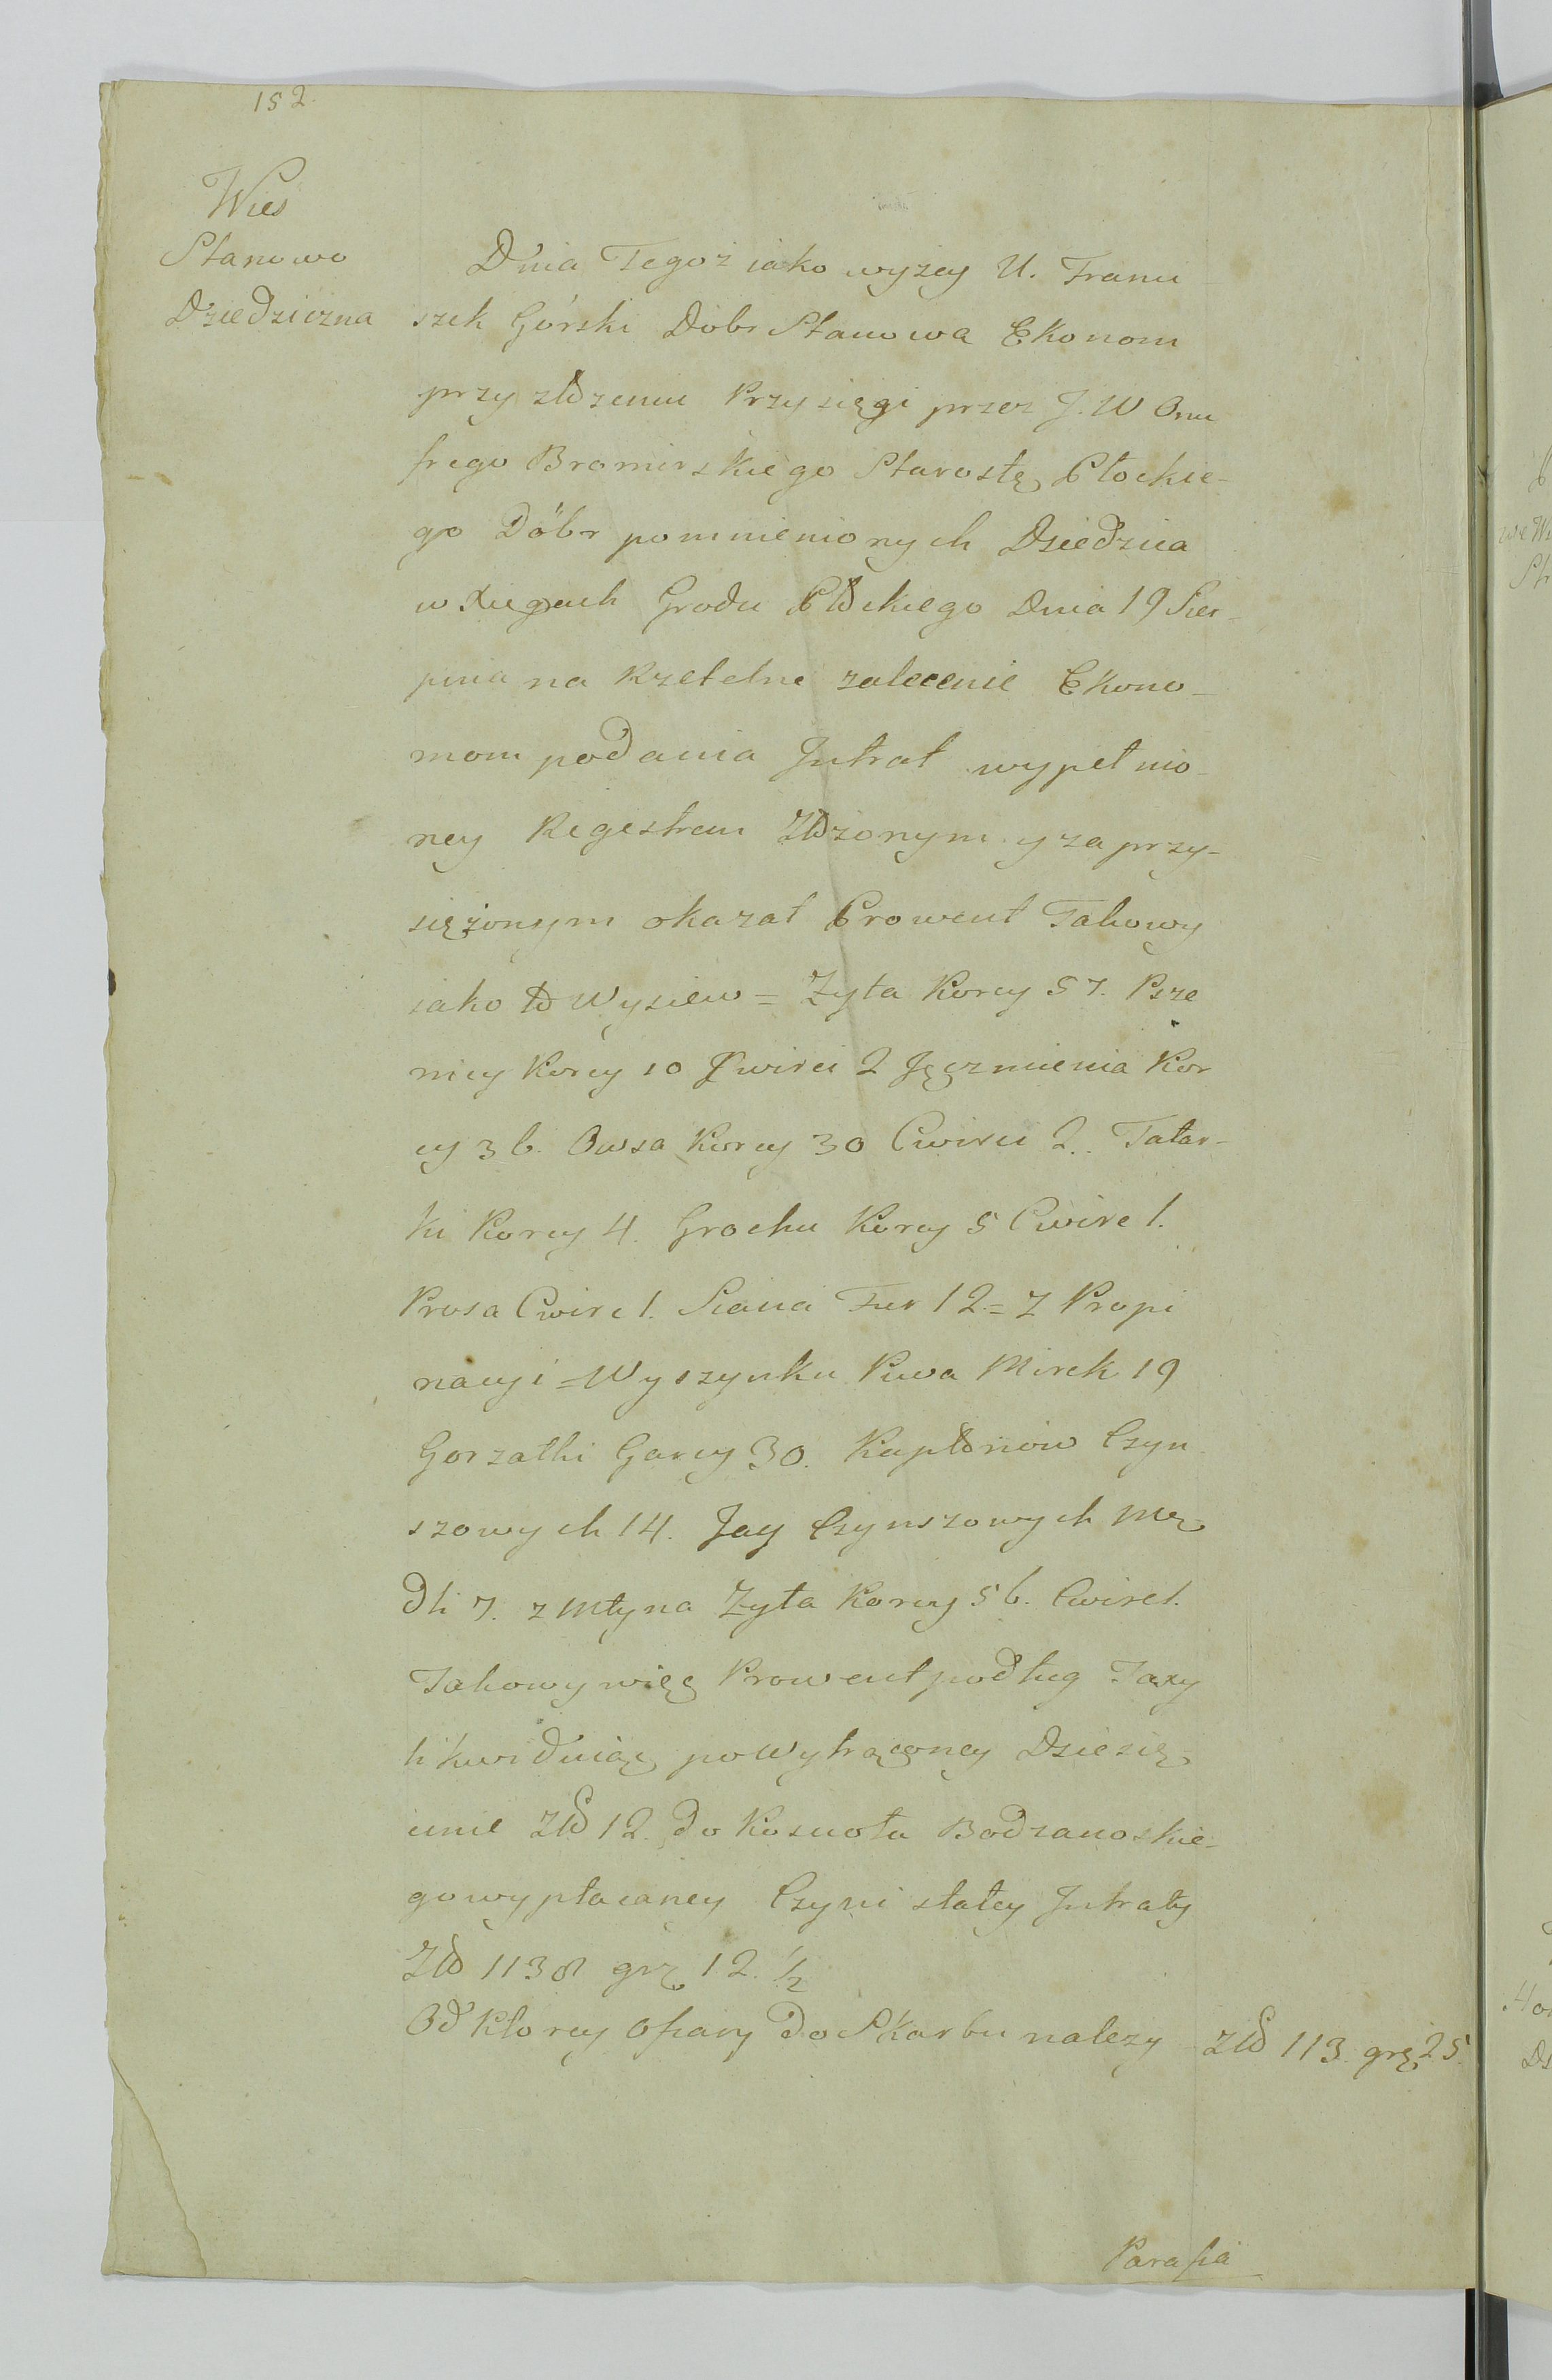 152.
Wies
Stanowo
Dziedziczna
Dnia Tegoż iako wyżey U. Franci
szek Górski Dobr Stanowa Ekonom
przy złożeniu Przysięgi przez J. W Onu
frego Bromirskiego Starostę Płockie-
go Dóbr pomnienionych Dziedzica
w Xięgach Grodu Płockiego Dnia 19 Sier-
pnia na Rzetelne zalecenie Ekono-
mom podania Jntrat wypełnio-
ney Regestrem Złożonym y zaprzy-
siężonym okazał Prowent Takowy
iako to Wysiew = Zyta Korcy 57. Psze
nicy Korcy 10 Cwirci 2 Jęczmienia Kor
cy 36. Owsa Korcy 30 Cwirci 2. Tatar-
ki Korcy 4. Grochu Korcy 5 Cwirc 1.
Prosa Cwirc 1. Siana Fur 12 = Z Propi
nacyi = Wyszynku Piwa Mirek 19
Gorzałki Garcy 30. Kapłonów Czyn
szowych 14. Jay Czynszowych Mę
dli 7. z Młyna Zyta Korcy 56. Cwirc 1.
Takowy więc Prowent podług Taxy
likwiduiąc po Wytrąconey Dziesię
cinie Złο 12. do Kosciοła Bodzanoskie-
go wypłacaney Czyni stałey Jntraty
Zło 1138 grę 12. 1/2
Od Ktorey Ofiary do Skarbu nalezy Zło 113. grę 25.
Parafia